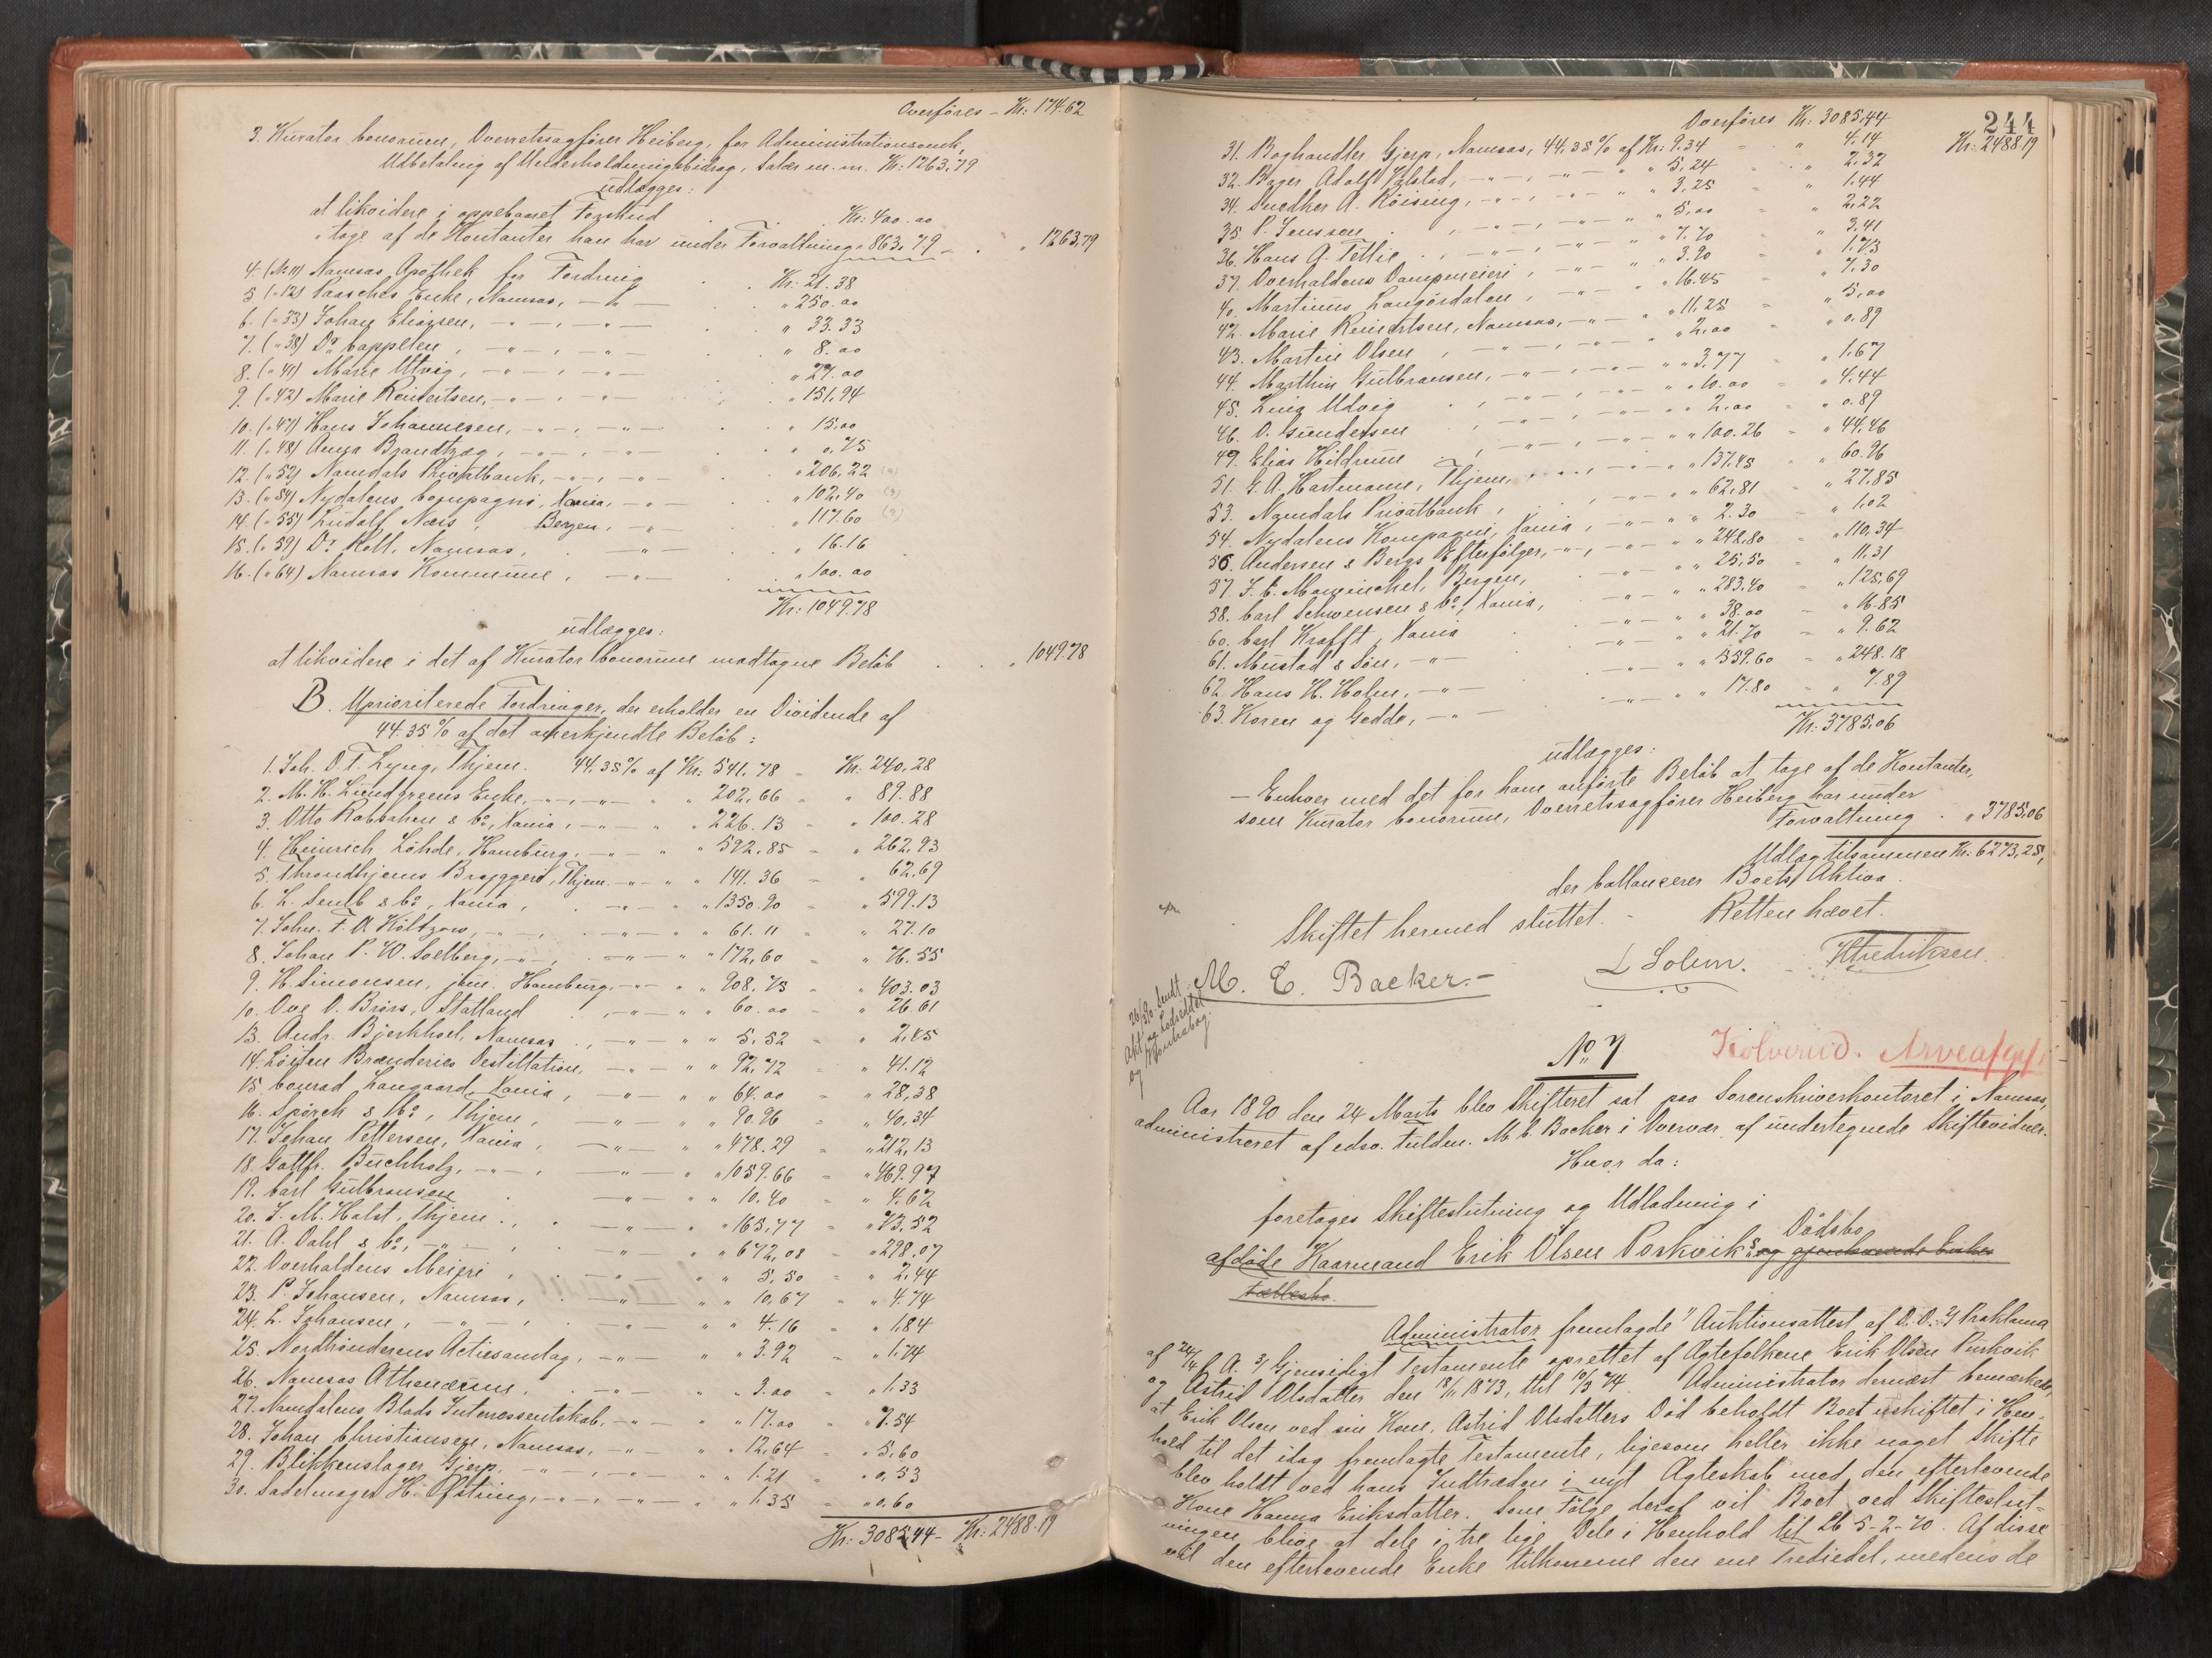 Overføres - Kr: 174.62
3. Kurator bonorum, Overretssagfører Heiberg, for Administrationsomk,
Udbetaling af Underholdningsbidrag, Salær m. m. Kr: 1263.79
udlægges:
at likvidere i oppebaaret Forskud . . Kr: 400.00
" tage af de Kontanter han har under Forvaltning " 863.79 - . " 1263,79
4. (No 11) Namsos Apothek for Fordring . . Kr: 21.38
5 (" 12) Paasches Enke, Namsos, - " - . " 250.00
6. (" 33) Johan Eliassen, - " - , - " - . " 33.33
7. (" 38) Dr Cappelen, - " - , - " - . " 8.00
8. (" 41) Marie Utvig, - " - , - " - . " 27.00
9. (" 42) Marie Reinertsen, - " - , - " - . " 151,94
10. (" 47) Hans Johannesen, - " - , - " - . " 15.00
11. (" 48) Anna Brandtzæg, - " - , - " - . " 0,75
12. (" 52) Namdals Privatbank, - " - , - " - . " 206,22
13. (" 54) Nydalens Compagni, Xania, - " - . " 102,40
14. (" 55) Ludolf Næs, Bergen, - " - . " 117.60
15. (" 59) Dr Roll, Namsos, . - " - . " 16.16
16. (" 64) Namsos Kommune, . - " - . " 100.00
Kr: 1049.78
udlægges:
at likvidere i det af Kurator bonorum modtagne Beløb . . " 1049.78
B. Uprioriterede Fordringer, der erholder en Dividende af
44.35% af det anerkjendte Beløb:
1. Joh. O. F. Lyng, Thjem. 44.35% af Kr: 541.78 = Kr: 240,28
2. M. H. Lundgreens Enke, - " - , - " - " " 202,66 = " 89.88
3. Otto Robbahn & Co, Xania, - " - " " 226.13 = " 100.28
4. Heinrich Löhde, Hamburg, - " - " " 592.85 = " 262,93
5. Throndhjems Bryggeri, Thjem - " - " " 141.36 = " 62.69
6. L. Senlb & Co, Xania, . - " - " " 1350.90 = " 599.13
7. Johs. F. A. Holtzow, - " - , . - " - " " 61.11 = " 27.10
8. Johan P. W. Solberg, - " - , . - " - " " 172,60 = " 76.55
9. H. Simonsen, jun. Hamburg, - " - " " 908.75 = " 403.03
10. Ove O. Brørs, Statland . , - " - " " 60.00 = " 26.61
13. Andr. Bjerkhoel, Namsos . , - " - " " 5.52 = " 2,45
14. Löiten Brænderies Destillation, - " - " " 92,72 = " 41.12
15. Conrad Langaard, Xania, - " - " " 64.00 = " 28,38
16. Spörck & Co, Thjem, - " - " " 90.96 = " 40,34
17. Johan Pettersen, Xania, - " - " " 478.29 = " 212,13
18. Gottfr. Buchholz, - " - , - " - " " 1059.66 = " 469.97
19. Carl Gulbransen . - " - " " 10.40 = " 4.62
20. J. M. Holst, Thjem . , . - " - " " 165,77 = " 73.52
21. A. Dahl & Co, - " - , . - " - " " 672,08 = " 298.07
22. Overhaldens Meieri , . - " - " " 5,50 = " 2,44
23. P. Johansen, Namsos, . - " - " " 10,67 = " 4.74
24. L. Johansen, - " - , . - " - " " 4.16 = " 1.84
25. Nordtrønderens Actiesamlag, - " - " " 3.92 = " 1,74
26. Namsos Athenæum, . - " - " " 3.00 = " 1.33
27. Namdalens Blads Interessentskab, - " - " " 17.00 = " 7.54
28. Johan Christiansen, Namsos, - " - " " 12,64 = " 5,60
29. Blikkenslager Gjerp, - " - , - " - " " 1.21 = " 0,53
30. Sadelmager H. Öfstring, - " - , - " - " " 1.35 = " 0,60
Kr: 3085,44 - Kr: 2488.19
244
Overføres Kr: 3085,44 Kr: 2488.19
31. Boghandler Gjerp, Namsos, 44.35% af Kr: 9.34 = " 4,14
32. Bager Adolf Kjelstad, - " - , - " - " " 5,24 = " 2,32
34. Snedker A. Röising, - " - , - " - " " 3,25 = " 1,44
35. P. Jenssen . , - " - , - " - " " 5,00 = " 2,22
36. Hans A. Tetlie . , - " - , - " - " " 7.70 = " 3,41
37. Overhaldens Dampmeieri, - " - " " 3.90 = " 1,73
40. Martinus Langørdalen, - " - " " 16.45 = " 7.30
42. Marie Reinertsen, Namsos, - " - " " 11.25 = " 5,00
43. Martin Olsen , - " - , - " - " " 2.00 = " 0.89
44. Marthin Gulbransen, - " - , - " - " " 3,77 = " 1.67
45. Lina Udvig . , - " - , - " - " " 10.00 = " 4.44
46. O. Gundersen . , - " - , - " - " " 2,00 = " 0.89
49. Elias Hildrum . , - " - , - " - " " 100.26 = " 44.46
51. G. A. Hartmann, Thjem, . , - " - " " 137,45 = " 60.96
53. Namdals Privatbank , . , - " - " " 62,81 = " 27.85
54. Nydalens Kompagni, Xania, - " - " " 2.30 = " 1,02
56. Andersen & Bergs Efterfølger, - " - , - " - " " 248,80 = " 110,34
57. J. C. Mowinckel, Bergen, . - " - " " 25,50 = " 11.31
58. Carl Schwensen & Co, Xania, . - " - " " 283.40 = " 125,69
60. Carl Krafft, Xania . - " - " " 38.00 = " 16.85
61. Mustad & Søn, - " - . - " - " " 21.70 = " 9.62
62. Hans H. Holm, - " - . - " - " " 559.60 = " 248.18
63. Koren og Gedde, - " - . - " - " " 17.80 = " 7.89
Kr: 3785.06
udlægges:
- Enhver med det for ham anførte Beløb at tage af de Kontanter,
som Kurator bonorum, Overretssagfører Heiberg har under
Forvaltning . " 3785,06
Udlæg tilsammen Kr: 6273,25,
der ballancerer Boets Aktiva.
Skiftet hermed sluttet. - Retten hævet.
M. C. Backer. - L Solem. Hfredriksen.
26/3 90. Sendt
Akt og Lodseddel
og Hovedbog.
No 7 Kolvereid. Arveafgift
Aar 1890 den 24 Marts blev Skifteret sat paa Sorenskriverkontoret i Namsos,
administreret af edsv. Fuldm. M. C. Backer i Overvær af undertegnede Skiftevidner.
Hvor da:
foretages Skifteslutning og Udlodning i
Dødsbo
afdøde Kaarmand Erik Olsen Porkviks og gjenlevende Enkes
fællesbo.
Administrator fremlagde 1) Auktionsattest af D. D. 2) Proklama
af 24/4 f. A. 3) Gjensidigt Testamente oprettet af Ægtefolkene Erik Olsen Purkvik
og Astrid Olsdatter den 18/1 1873, thl 10/3 74. Administrator dernæst bemærkede,
at Erik Olsen ved sin Kone, Astrid Olsdatters Død beholdt Boet uskiftet i Hen-
hold til det idag fremlagte Testamente, ligesom heller ikke noget Skifte
blev holdt ved hans Indtræden i nyt Ægteskab med den efterlevende
Kone Hanna Eriksdatter. Som Følge deraf vil Boet ved Skifteslut-
ningen blive at dele i tre lige Dele i Henhold til Lb 5-2-70. Af disse
vil den efterlevende Enke tilkomme den ene Trediedel, medens de